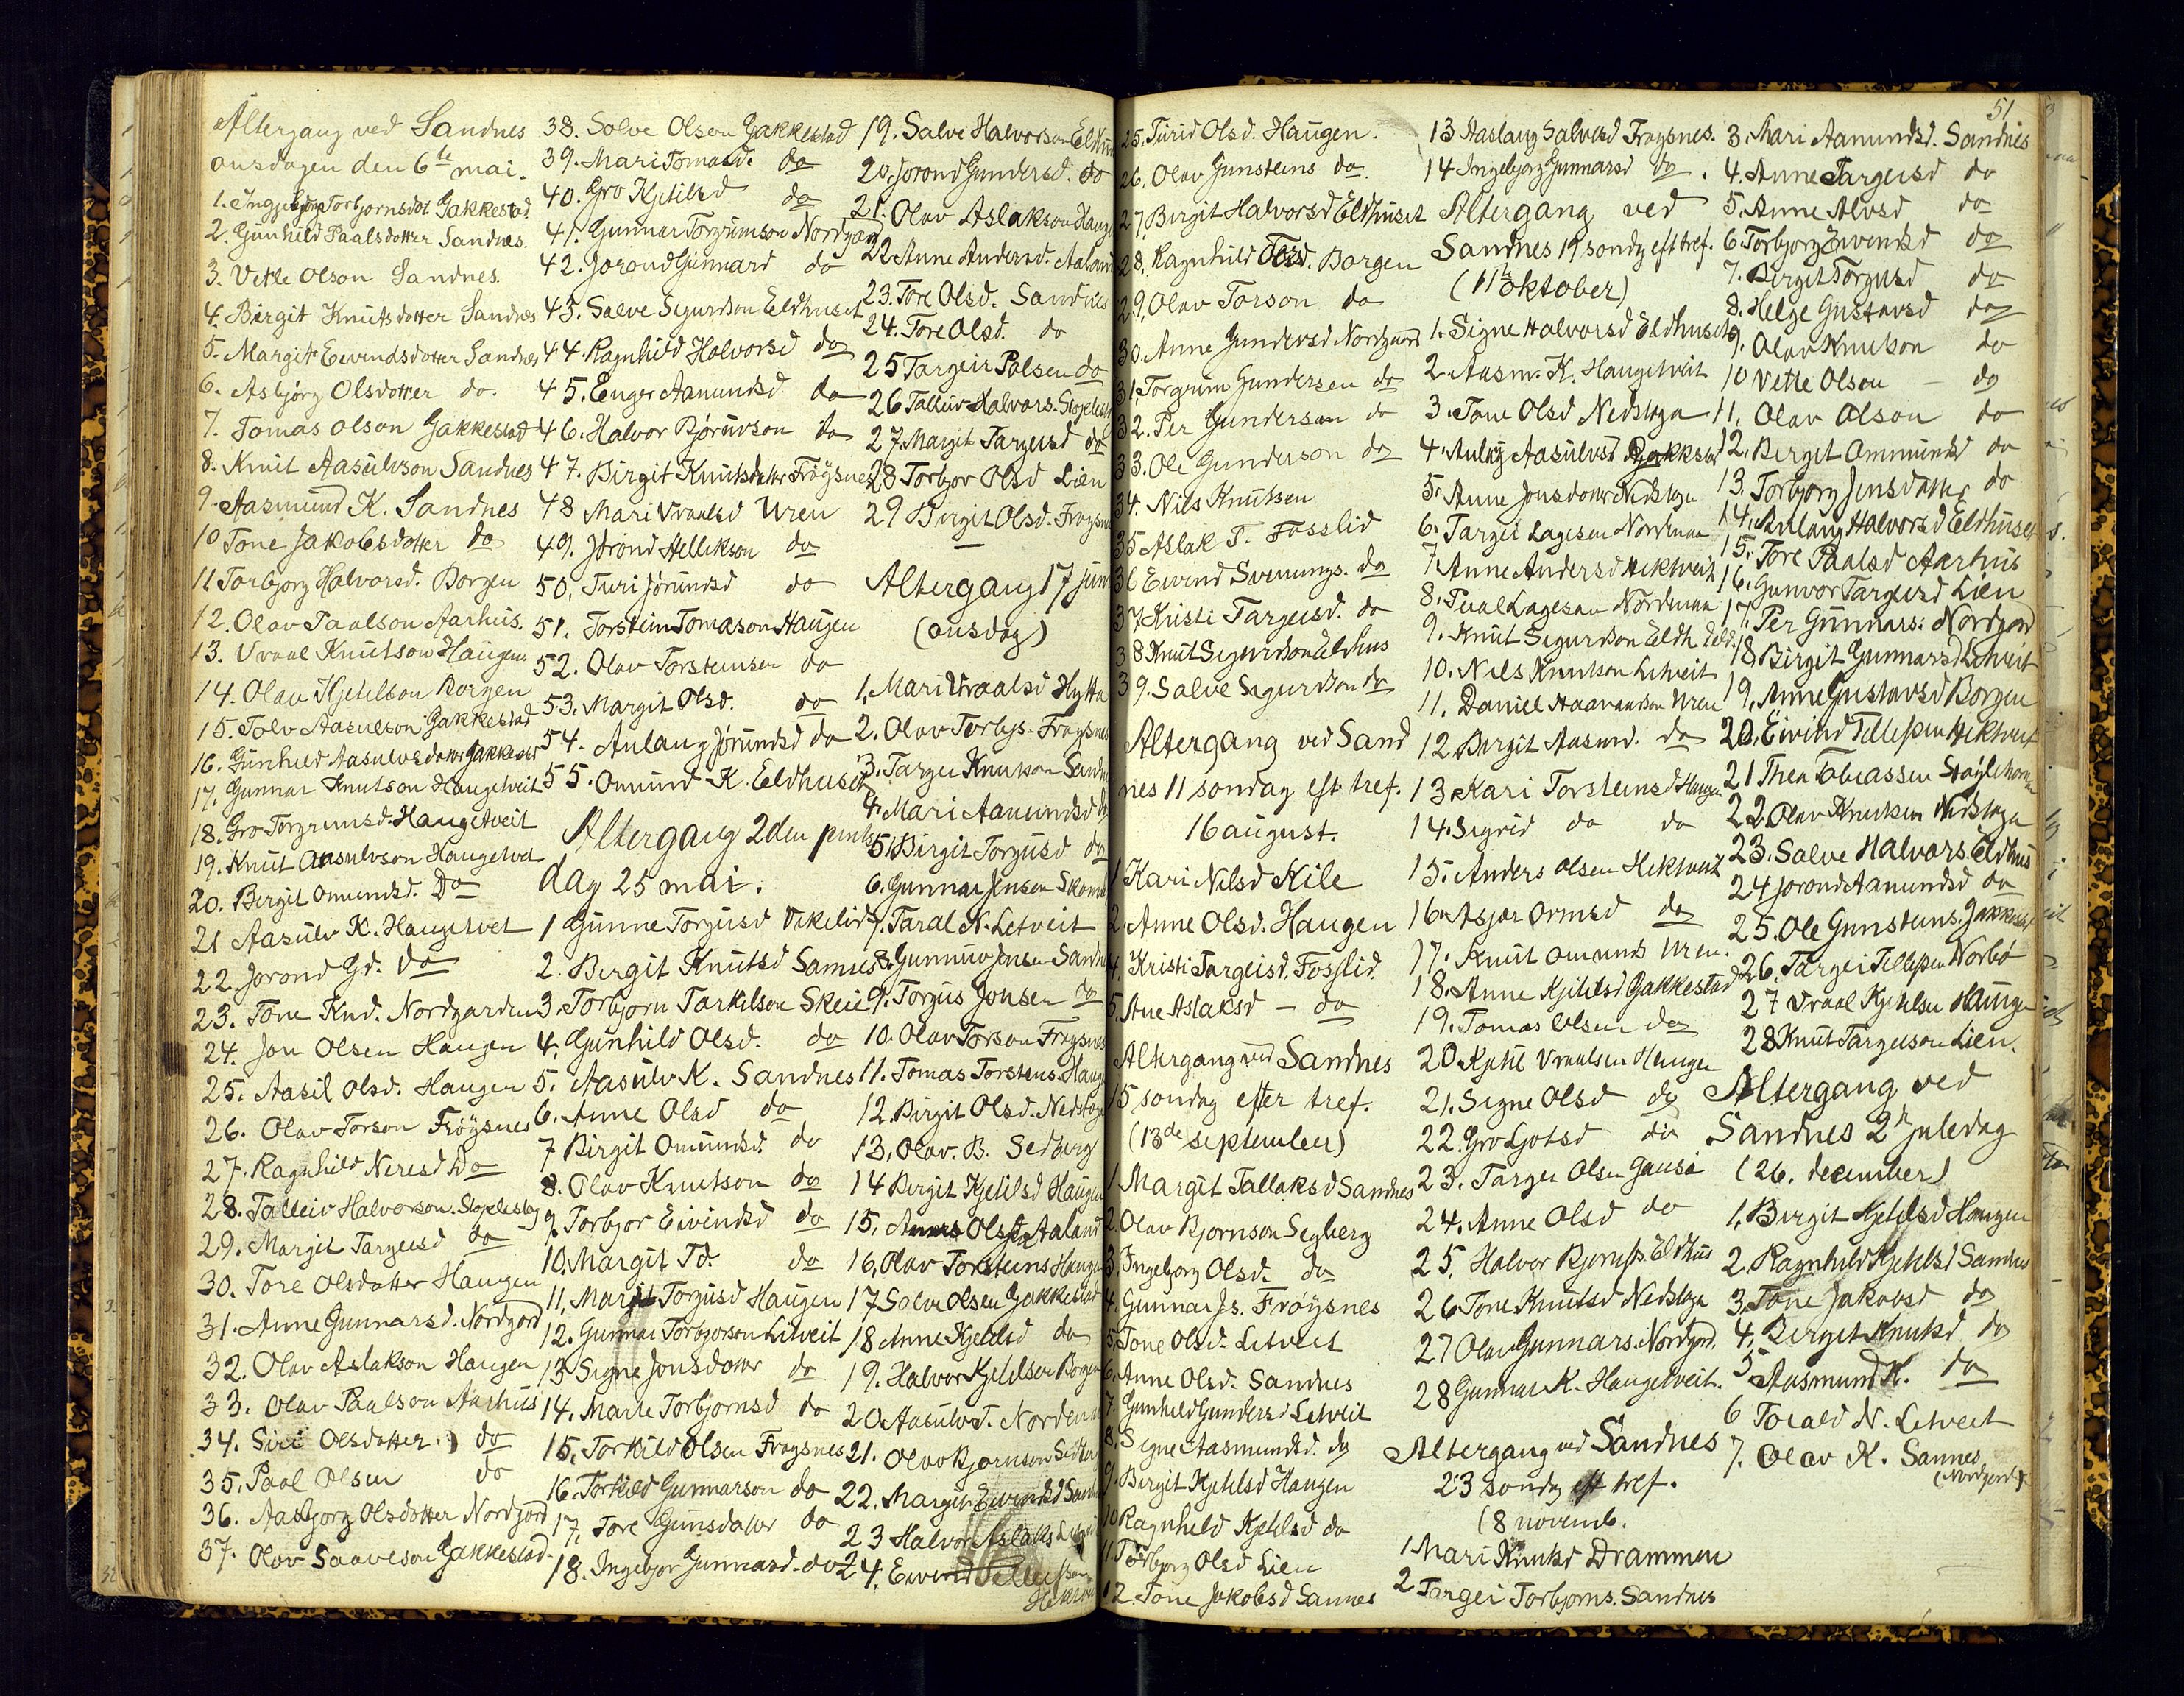 Altergang ved Sandnes
onsdagen den 6te mai.
1. Ingjebjørg Torbjornsdot Gakkestad
2. Gunhild Paalsdotter Sandnes.
3. Vetle Olson Sandnes.
4. Birgit Knutsdotter Sandnes
5. Margit Eivindsdotter Sandnes
6. Asbjørg Olsdotter do.
7. Tomas Olson Gakkestad
8. Knut Aasulvson Sandnes
9. Aasmund K. Sandnes
10 Tone Jakobsdotter do
11 Torbjorg Halvorsd. Borgen
12. Olav Paalson Aarhus.
13. Vraal Knutson Haugen
14. Olav Kjetilson Borgen
15. Tolv Aasulson Gakkestad
16. Gunhild Aasulvsdotter Gakkestad
17. Gunnar Knutson Haugetveit
18. Gro Torgrimsd. Haugetveit
19. Knut Aasulvson Haugetvet
20. Birgit Omundsd. Do
21 Aasulv K. Haugetvet
22. Jorond Gd. Do
23. Tone Knd. Nordgarden
24. Jon Olsen Haugen
25. Aasil Olsd. Haugen
26. Olav Torson Frøysnes
27. Ragnhild Neresd Do
28. Talleiv Halvorson. Stoylestog
29. Margit Targeisd do
30. Tore Olsdatter Haugen
31. Anne Gunnarsd. Nordgord
32. Olav Aslakson Haugen
33. Olav Paalson Aarhus
34. Siri Olsdotter do
35. Paal Olsen do
36. Aasbjorg Olsdotter Nordjord
37. Olav Saaveson Gakkestad
38. Solve Olson Gakkestad
39. Mari Tomasd. do
40. Gro Kjetilsd do
41. Gunnar Torgrimson Nordgard
42. Jorond Gunnard do
43. Salve Sigurdson Eldhuset
44. Ragnhild Halvorsd do
45. Enger Aamundsd do
46. Halvor Bjørnvson do
47. Birgit Knutsdatter Frøysnes
48 Mari Vraalsd Uren
49. Jørond Hellikson do
50. Turi Jørundsd do
51. Torstein Tomason Haugen
52. Olav Torsteinsen do
53. Margit Olsd. do
54. Aulaug Jørundsd do
55. Omund K. Eldhuset
Altergang 2den pints
dag 25 mai.
1 Gunne Torgusd Vekelid
2. Birgit Knutsd Samnes
3. Torbjorn Tarkelson Skeie
4. Gunhild Olsd. do
5. Aasulv K. Sandnes
6. Anne Olsd do
7 Birgit Omundsd. do
8. Olav Knutson do
9. Torbjor Eivindsd do
10. Margit Td. do
11. Margit Torgusd Haugen
12. Gunnar Torbjorson Litveit
13 Signe Jonsdatter do
14. Marte Torbjornsd do
15. Torkild Olsen Froysnes
16. Torkild Gunnarson do
17. Tore Gunsdatter do
18. Ingebjor Gunnarsd. do
19. Salve Halvorson Eldhus
20. Jorond Gundersd. do
21. Olav Aslakson Haug
22. Anne Andersd. Aaland
23. Tore Olsd. Sandnes
24. Tore Olsd. do
25 Targeir Palsen do
26 Talleiv Halvors.
27. Margit Targeisd do
28 Torbjor Olsd Lien
29 Birgit Olsd. Froysn
Altergang 17 juni
(onsdag)
1. Mari Vraalsd Hytta
2. Olav Torbjs. Froysnes
3. Targei Knutson Sandn
4. Mari Aamundsd do
5. Birgit Torgusd do
6. Gunnar Jonsen
7. Taral N. Letveit
8. Gunnuv Jonsen Sandn
9. Torgus Jonsen do
10. Olav Torson Froysnes
11. Tomas Torsteins. Haug
12. Birgit Olsd. Nedstoga
13. Olav. B. Sedberg
14 Birgit Kjetilsd Haugen
15. Olsd Aaland
16. Olav Torsteins Haugen
17. Solve Olsen Gakkestad
18 Anne Kjetilsd do
19. Halvor Kjetilson Borgen
20 Aasulv T. Nordenn
21. Olav Bjornson
22. Margit Eivindsd Sandn
23 Halvor Aslaks
24. Eivind Tellefsen
25. Turid Olsd. Haugen.
26. Olav Gunsteins do.
27. Birgit Halvorsd Eldhuset
28. Ragnhild Torsd. Borgen
29. Olav Torson do
30. Anne Gundersd Nordgaard
31 Torgrim Gundersen do
32. Per Gunderson do
33. Ole Gunderson do
34. Nils Knutsen
35 Aslak T. Fosslid
36 Eivind Svenungs. do
37 Kristi Targeisd. do
38 Knut Sigurdson Eldhus
39. Salve Sigurdson do
Altergang ved Sand
nes 11 sondag eft. tref.
16 august.
1 Kari Nilsd Kile
2. Anne Olsd. Haugen
4. Kristi Targeisd. Fosslid.
5. Ane Aslaksd - do
Altergang ved Sandnes
15 sondag efter tref.
(13de september)
1 Margit Tallaksd Sandnes
2. Olav Bjornson Segberg
3. Ingebjorg Olsd. do
4. Gunnar Js. Frøysnes
5. Tone Olsd. Letveit
6. Anne Olsd. Sandnes
7. Gunhild Gundersd Letveit
8. Signe Aasmundsd. do
9. Birgit Kjetilsd Haugen
10 Ragnhild Kjetilsd do
11. Torbjorg Olsd Lien
12. Tone Jakobsd Sannes
13 Aaslaug Salvesd Froysnes.
14 Ingebjorg Gunnarsd do.
Altergang ved
Sandnes 19 sondg eft tref.
(11te oktober)
1. Signe Halvorsd Eldhuset
2. Aasm. K. Haugetveit
3. Tone Olsd Nedstoga
4. Aulaug Aasulvsd Gakkstad
5. Anne Jonsdotter Nedstoga
6. Targei Lagesen Nordman
7. Anne Andersd Hektveit
8. Paal Lagesen Nordman
9. Knut Sigurdson Eldh.
10. Nils Knutson Letveit
11. Daniel Haavardson Uren
12 Birgit Aasmd. do
13 Kari Torsteinsd Haugen
14. Sigrid do do
15. Anders Olsen Hektveit
16. Asjør Ormsd do
17. Knut Omunds Uren.
18. Anne Kjetilsd Gakkestad
19. Tomas Olsen do
20 Kjetil Vraalsen Haugen
21. Signe Olsd do
22. Gro Ljotsd do
23. Targei Olsen Gauså
24. Anne Olsd do
25. Halvor Bjornss. Eldhus
26 Tone Knutsd Nedstoga
27 Olav Gunnars. Nordgrd.
28 Gunnar K. Haugetveit.
Altergang ved Sandnes
23 sondg eft tref.
(8 novemb.
1 Mari Knutsd Drammen
2 Targei Torbjorns. Sandnes
51
3. Mari Aamundsd. Sandnes
4. Anne Targeisd do
5. Anne Alvsd do
6. Torbjorg Eivendsd do
7. Birgit Torgusd do
8. Helge Gustavsd do
9. Olav Knutson do
10 Vetle Olson - do
11. Olav Olson do
12. Birgit Ommundsd do
13. Torbjorg Jonsdatter do
14. Aulaug Halvorsd Eldhuset
15. Tore Paalsd Aarhus
16. Gunvor Targeisd Lien
17. Per Gunnars. Nordgord
18. Birgit Gunnarsd Letveit
19. Anne Gustavsd Borgen
20. Eivind Tellefsen Hektveit
21 Thea Tobiassen
22. Olav Knutsen Nedstoga
23. Salve Halvors. Eldhus
24 Jorond Aamundsd do
25. Ole Gunsteins. Gakkestad
26. Targei Tellefsen Norbø
27 Vraal Kjetilsen Haugen
28 Knut Targeison Lien.
Altergang ved
Sandnes 2n juledag
(26. december)
1. Birgit Kjetilsd Haugen
2. Ragnhild Kjetilsd Sandnes
3. Tone Jakobsd do
4. Birgit Knutsd do
5 Aasmund K. do
6 Torald N. Letveit
7. Olav K. Sannes
(Nordgord)